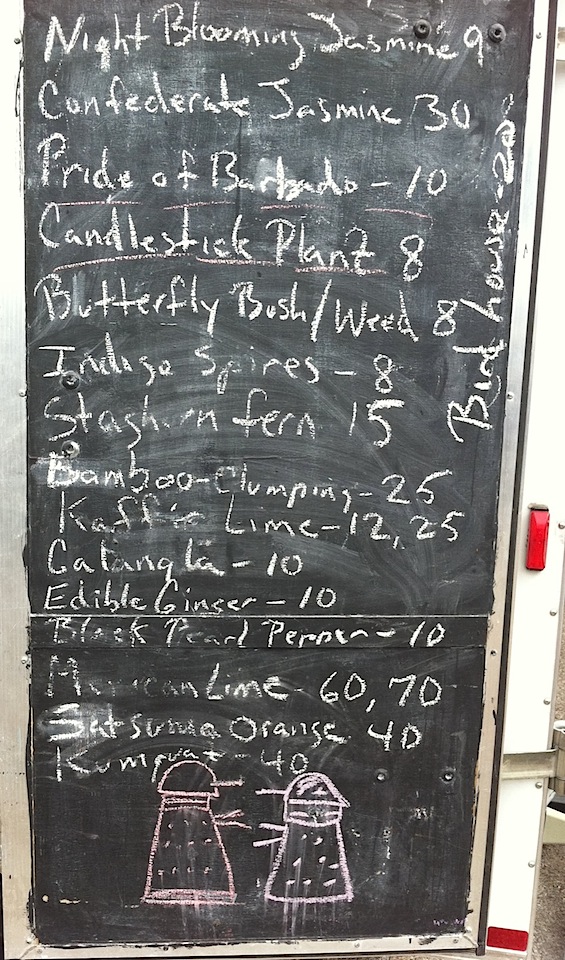 Night Blooming Jasmine 9
Confederate Jasmine 30
Pride of Barbado - 10
Candlestick Plant 8
Butterfly Bush/Weed 8
Indigo Spires - 8
Staghorn fern 15
Bamboo-Clumping - 25
Kaffir Lime - 12, 25
Galangla - 10
Edible Ginger - 10
Black Pearl Pepper - 10
Mexican Lime 60, 70
Satsuma Orange 40
Kumquat - 40
Bird house